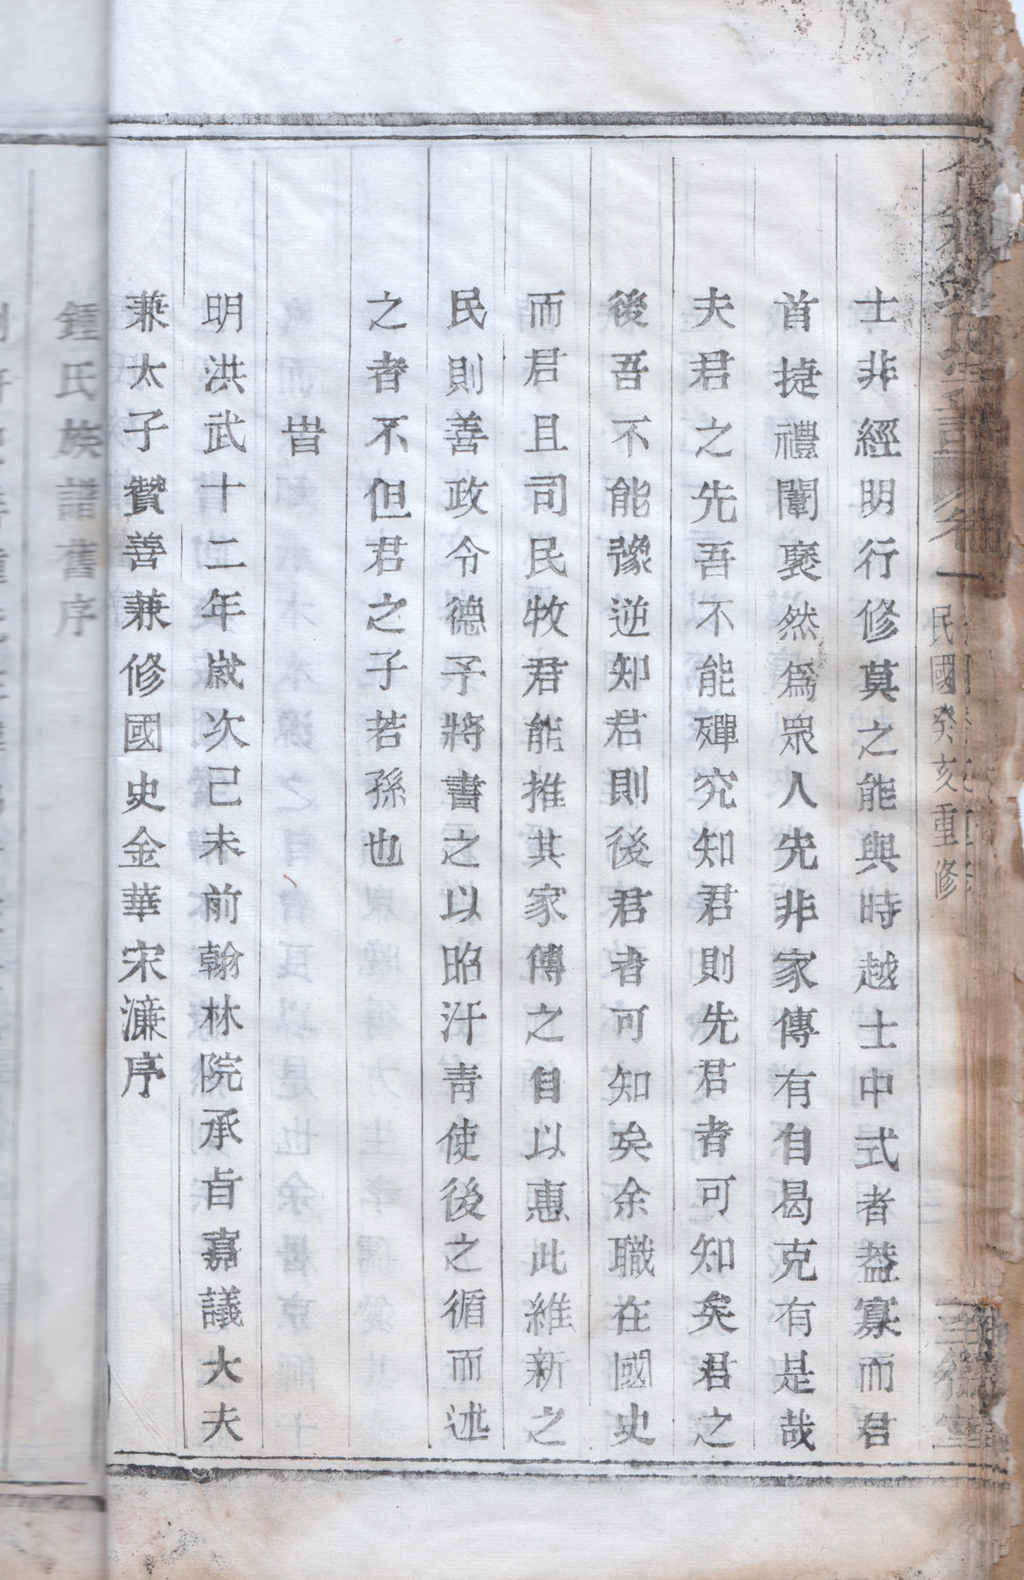 卷一
民國癸亥重修
士非經明行修莫之能與時越士中式者益寡而君
首捷禮闈褎然為衆人先非家傳有自曷克有是哉
夫君之先吾不能殫究知君則先君者可知矣君之
後吾不能豫逆知君則後君者可知矣余職在國史
而君且司民牧君能推其家傳之自以惠此維新之
民則善政令德予將書之以昭汗青使後之循而述
之者不但君之子若孫也
旹
明洪武十二年歲次己未前翰林院承旨嘉議大夫
兼太子贊善兼修國史金華宋濂序
鍾氏族譜舊序